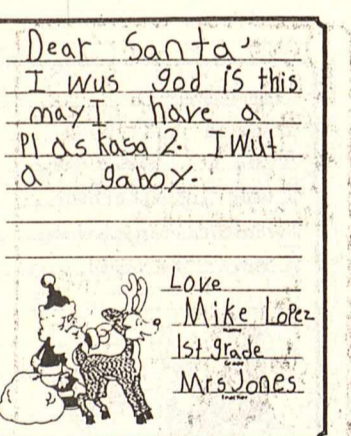 Dear Santa,
I wus god is this
may I have a
Plaskasa 2. I wut
a gabox.
Love
Mike Lopez
Name
1st grade
Grade
Mrs Jones
Teacher